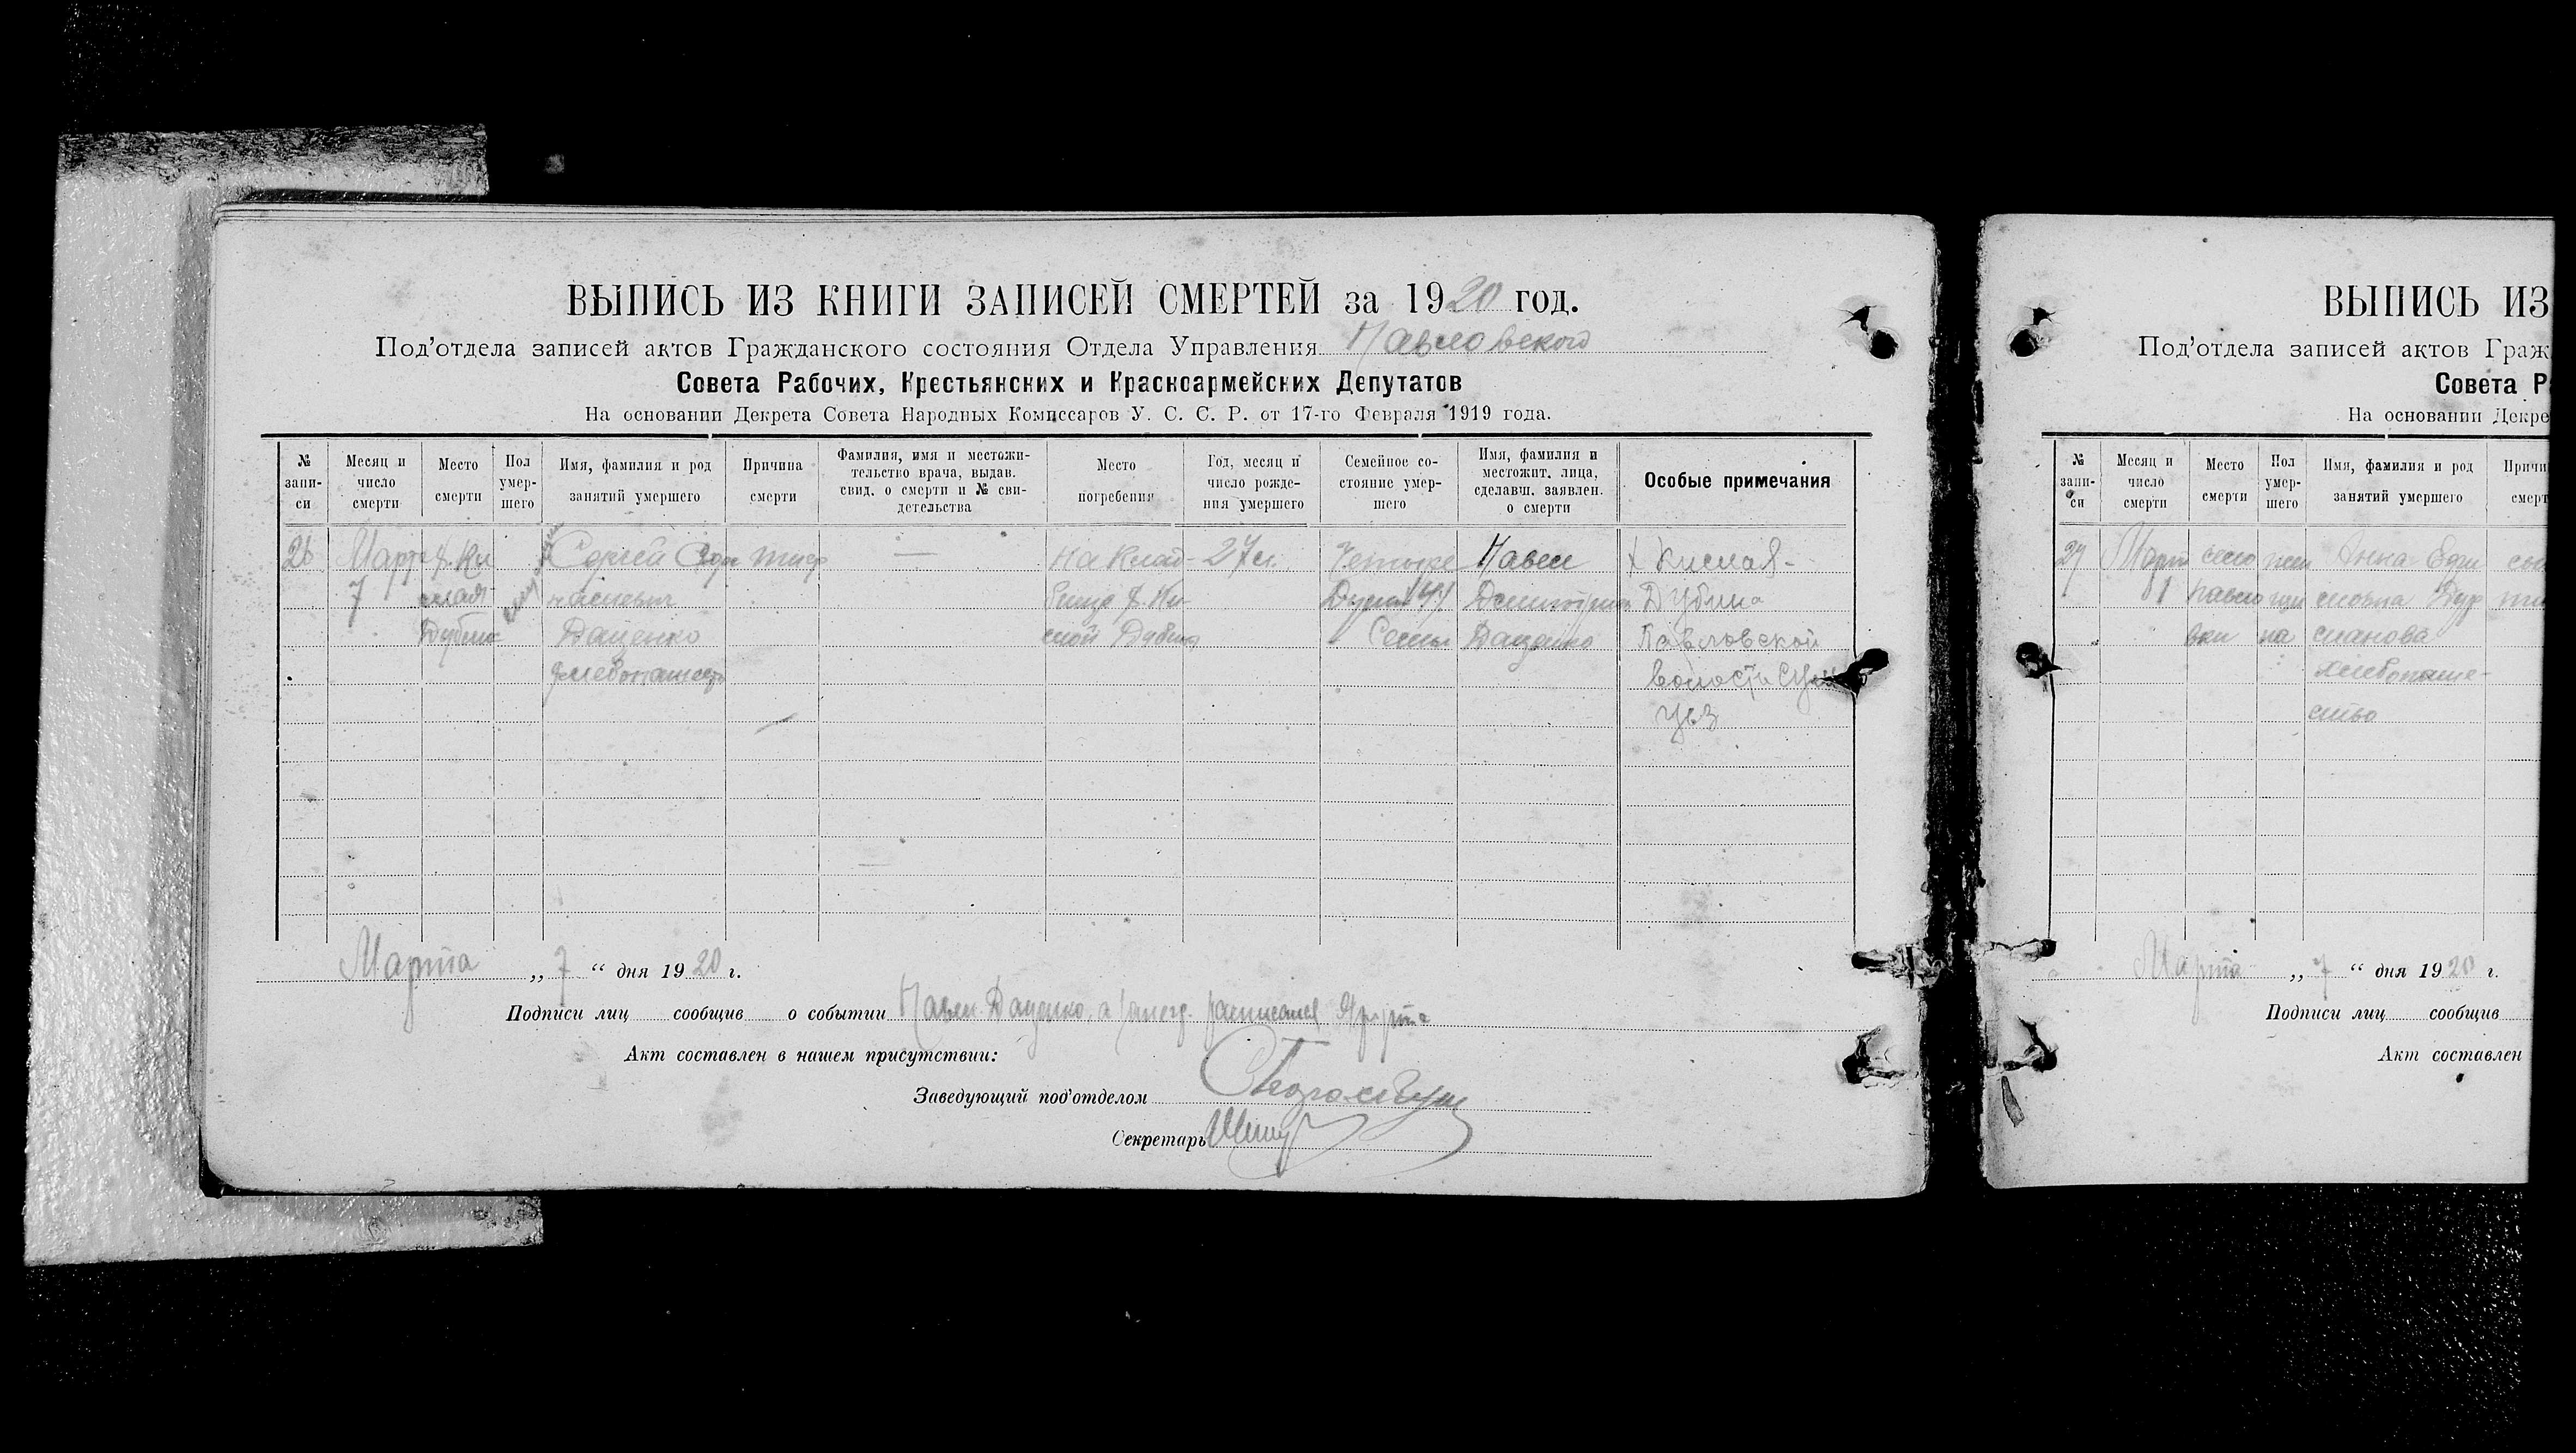 ВЫПИСЬ ИЗ КНИГИ ЗАПИСЕЙ СМЕРТЕЙ за 1920 год.
Под'отдела записей актов Гражданского состояния Отдела Управления Павловского
Совета Рабочих, Крестьянских и Красноармейских Депутатов
На основании Декрета Совета Народных Комиссаров У. С. С. Р. от 17-го Февраля 1919 года.
№ запи-си
Месяц и число смерти
Место смерти
Пол умер-шего
Имя, фамилия и род занятий умершего
Причина смерти
Фамилия, имя и местожи-тельство врача, выдав. свид. о смерти и № сви-детельства
Место погребения
Год, месяц и число рожде-ния умершего
Семейное со-стояние умер-шего
Имя, фамилия и местожит. лица, сделавш. заявлен. о смерти
Особые примечания
26 Март х. Ки Сергей тиф — на клад- 27 л. Четыре Павел х Кислая-
7 слая Души /4/ Дмитриев Дубина
Дубина Даценко слой Дубина Семьи Даценко Павловской
хлебопашест волости
уез
Марта „ 7 “ дня 1920 г.
Подписи лиц сообщив о событии Павел Даценко, а расписался
Акт составлен в нашем присутствии:
Заведующий под'отделом
Секретарь
ВЫПИСЬ ИЗ
Под'отдела записей актов Граж
Совета Р
На основании Декре
№ запи-си
Месяц и число смерти
Место смерти
Пол умер-шего
Имя, фамилия и род занятий умершего
Причи
смерт
27 Март село жен Анна
павло щи
вки на
хлебопаше-
ство
Марта „ 7 “ дня 1920 г.
Подписи лиц сообщив
Акт составлен